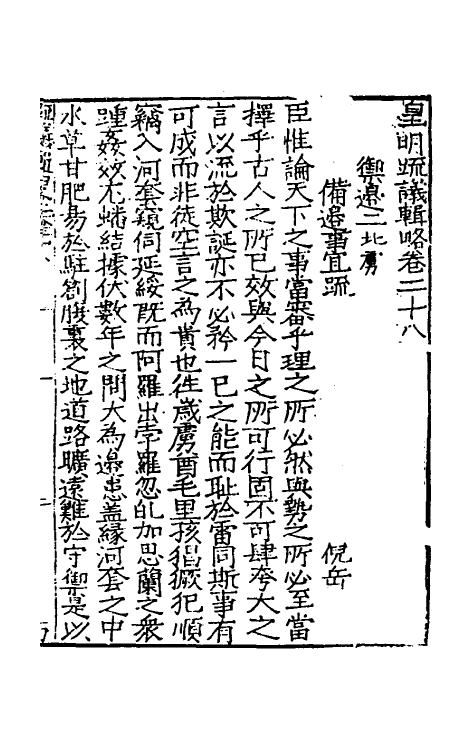 皇明疏議輯略卷二十八
禦邊二北虜
備邊事宜疏 倪岳
臣惟論天下之事當審乎理之所必然與勢之所必至當
擇乎古人之所已效與今日之所可行固不可肆夸大之
言以流於欺誕亦不必矜一已之能而恥於雷同斯事有
可成而非徒空言之為貴也徃歲虜酋毛里孩猖獗犯順
竊入河套窺伺延綏既而阿羅出孛羅忽乩加思蘭之衆
踵姦效尤蟠結據伏數年之間大為邊患盖緣河套之中
水草甘肥易於駐劄腹裏之地道路曠遠難於守禦是以